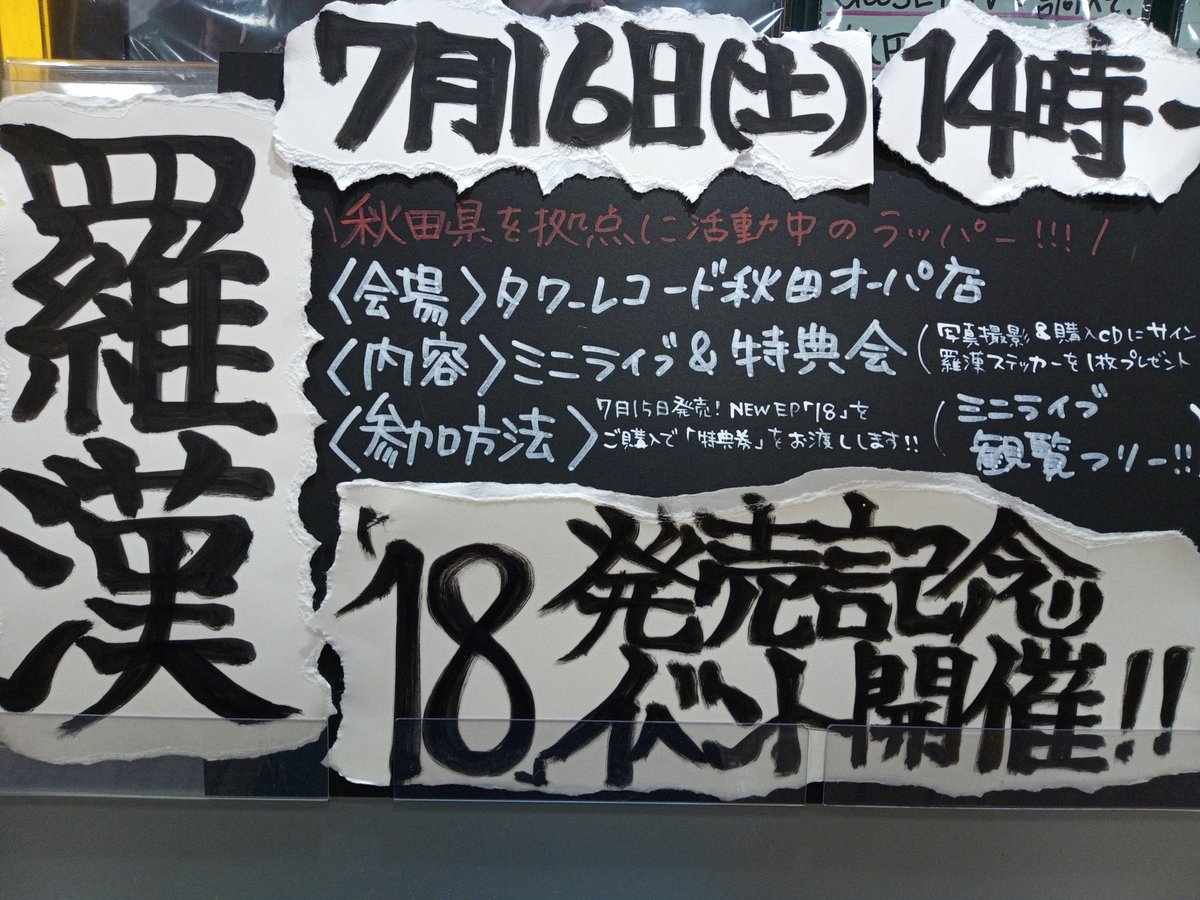 7月16日(土) 14時ー
羅漢
\秋田県を拠点に活動中のラッパー!!!/
〈会場〉タワーレコード秋田オーパ店
〈内容〉ミニライブ&特典会(写真撮影&購入CDにサイン
羅漢ステッカーを1枚プレゼント
〈参加方法〉7月15日発売!NEW EP「18」を
ご購入で「特典券」をお渡しします!!
(ミニライブ
観覧フリー!!
'18 発売記念
イベント開催!!